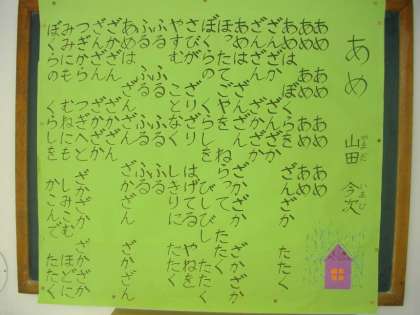 あめ
山田 今次
やまだ いまじ
あめ あめ あめ あめ
あめ あめ あめ あめ
あめは ぼくらを ざんざか たたく
ざんざか ざんざか
ざんざん ざかざか
あめは ざんざん ざかざか ざかざか
ほったてごやを ねらって たたく
ぼくらの くらしを びしびし たたく
さびが ざりざり はげてる やねを
やすむ ことなく しきりに たたく
ふる ふる ふる ふる
ふる ふる ふる ふる
あめは ざんざん ざかざん ざかざん
ざかざん ざかざん
ざんざん ざかざか
つぎから つぎへと ざかざか ざかざか
みみにも むねにも しみこむ ほどに
ぼくらの くらしを かこんで たたく